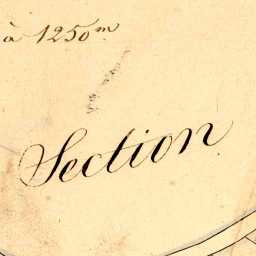 à 1250.m
Section